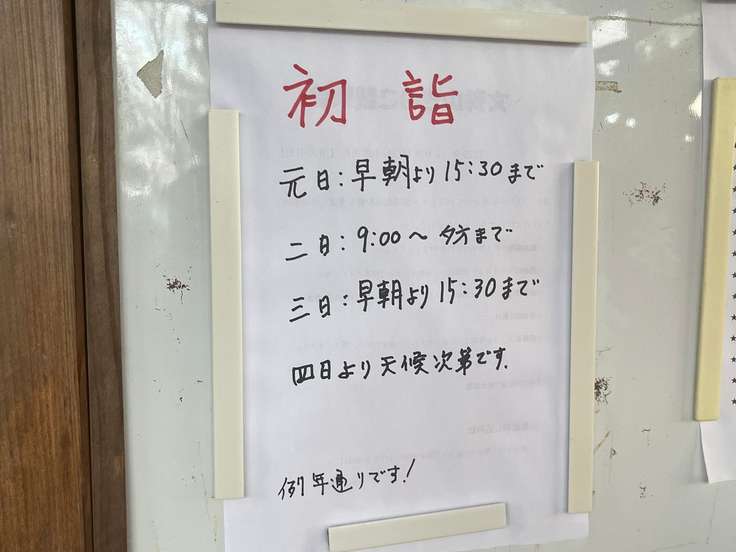 初詣
元日:早朝より15:30まで
二日:9:00〜夕方まで
三日:早朝より15:30まで
四日より天候次第です.
例年通りです!